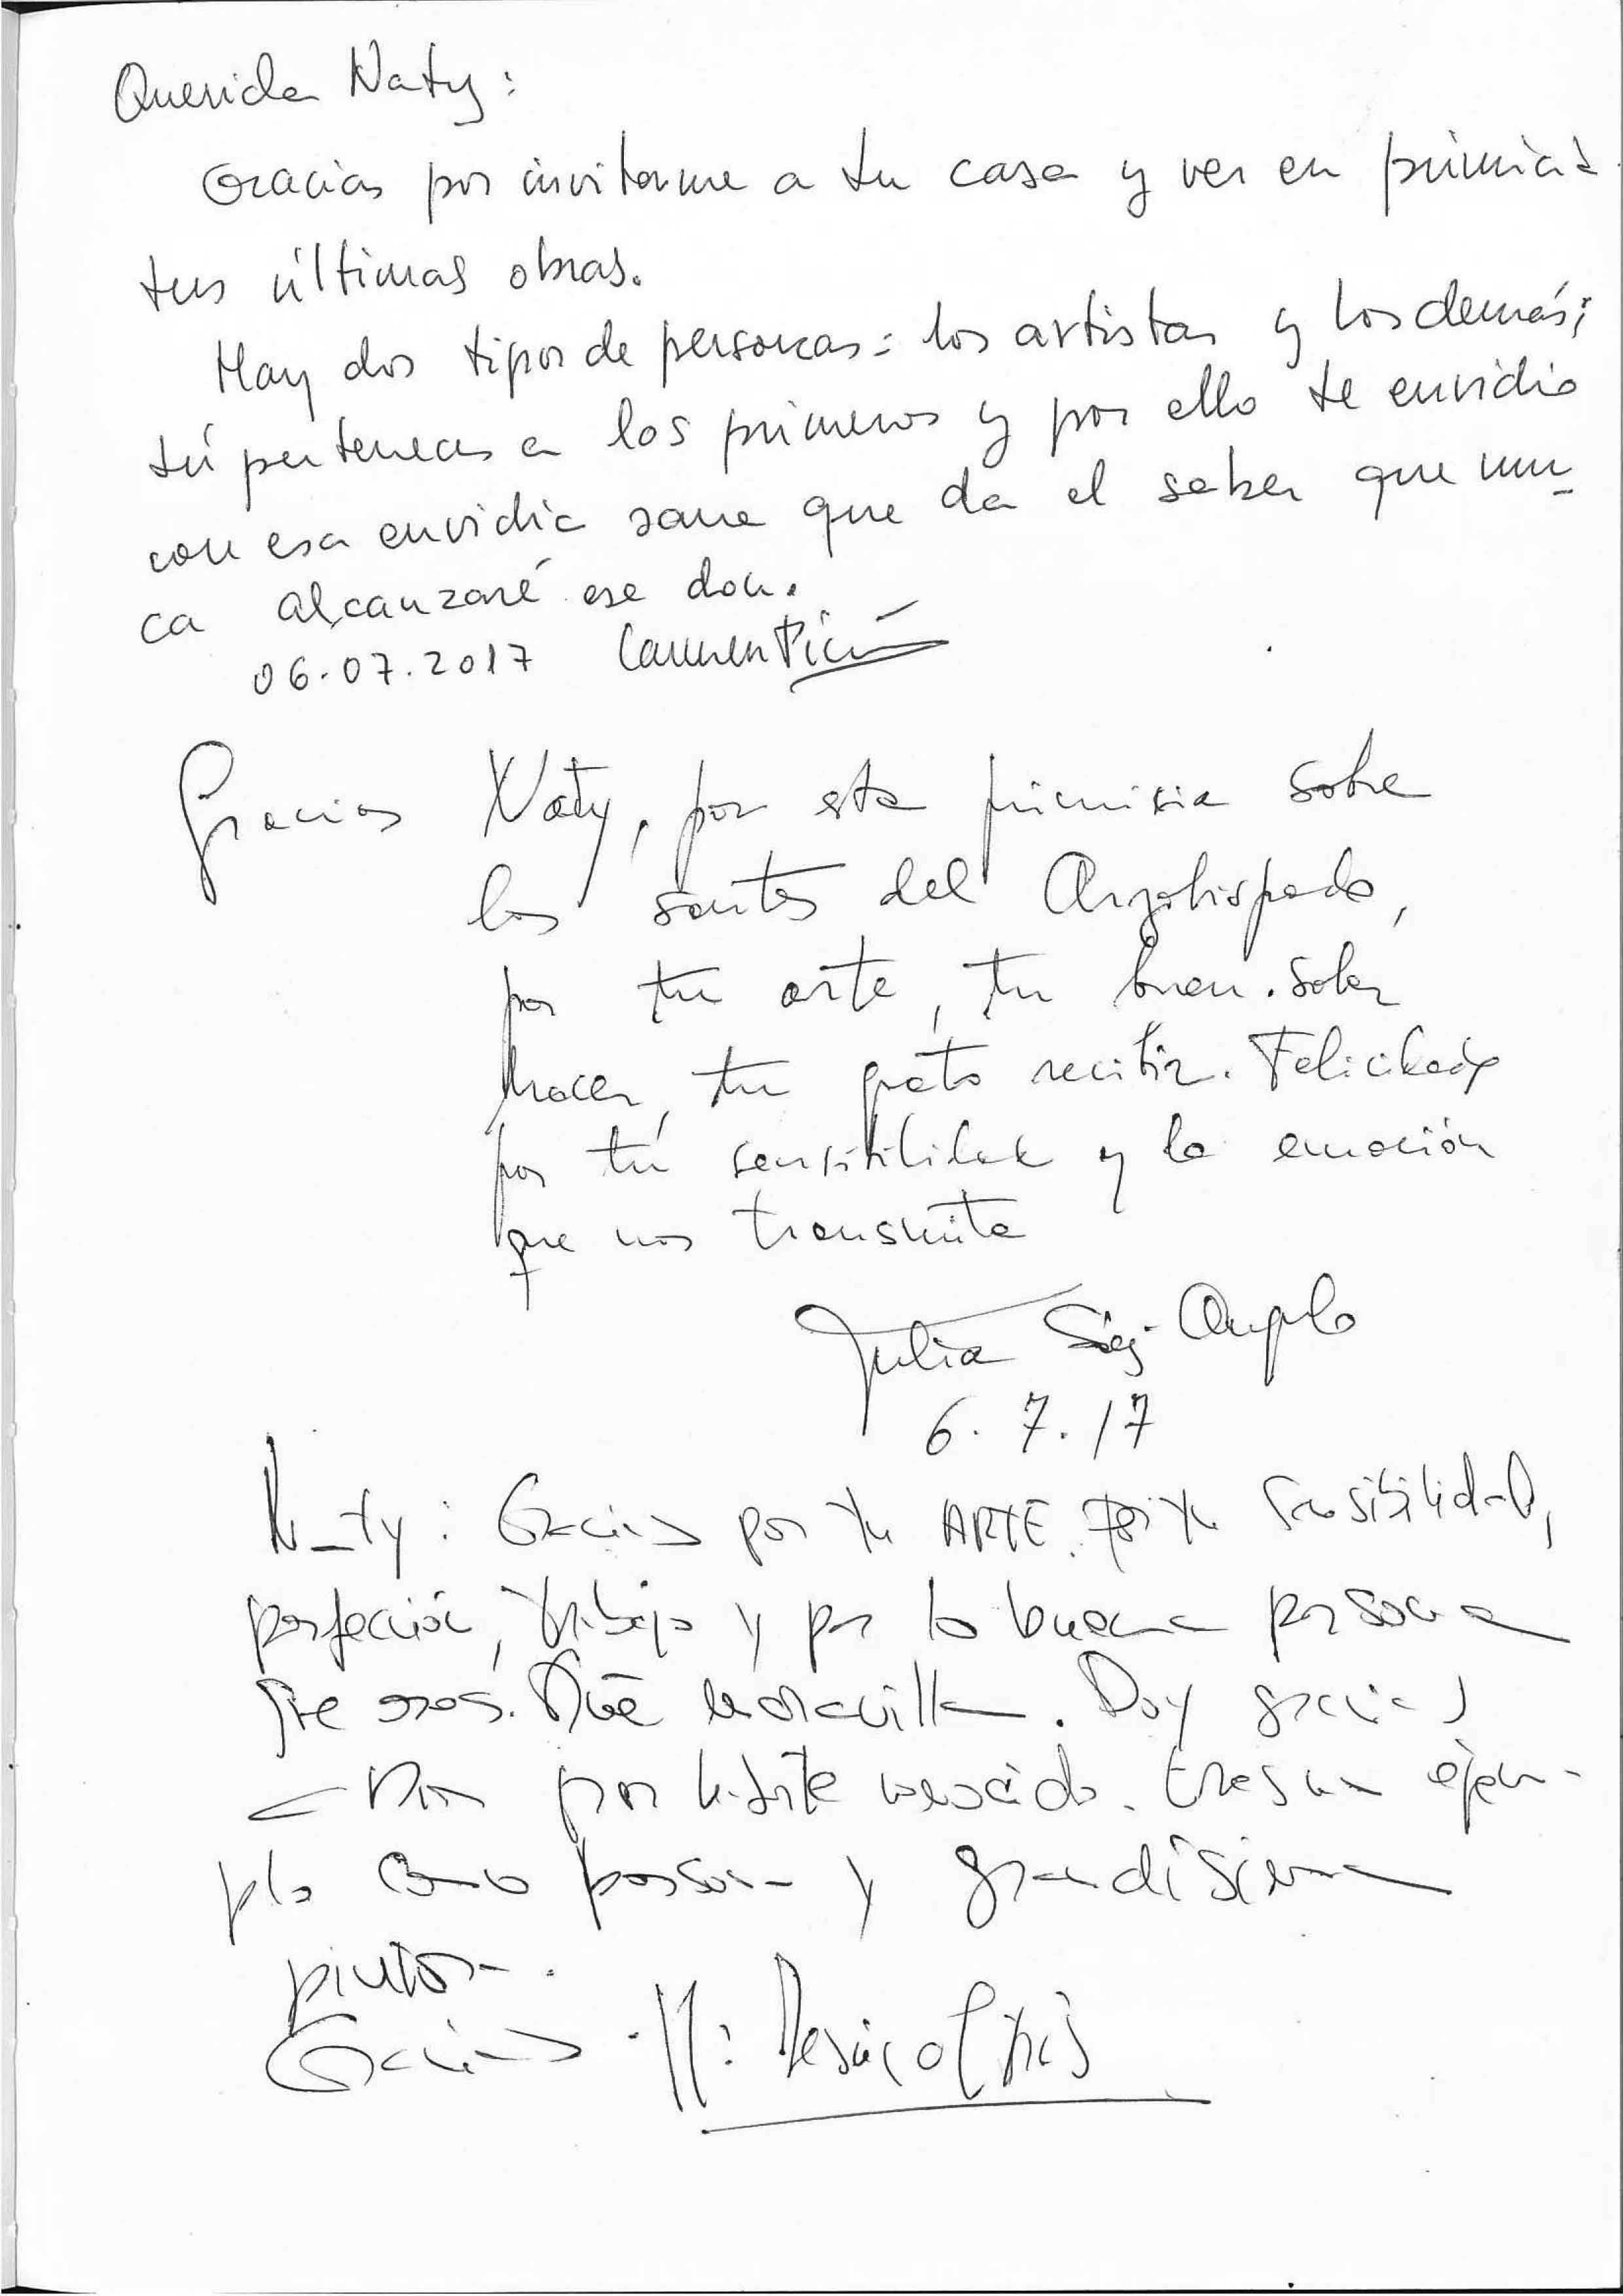 Querida Naty:
Gracias por invitarme a tu casa y ver en primicia
tus últimas obras.
Hay dos tipos de personas: los artistas y los demás;
tú perteneces a los primeros y por ello te envidio
con esa envidia sana que da el saber que nun-
ca alcanzaré ese don.
06.07.2017 Carmen
Gracias Naty, por esta primisia sobre
los santos del Arzobispado,
por tu arte, tu buen saber
hacer, tu grato recibir. Felicidades
por tú sensibilidad y la emoción
que nos transmite
Julia Sáez-Angulo
6.7.17
Naty: Gracias por tu ARTE. Por tu sensibilidad,
perfección, trabajo y por lo buena persona
que eres. Qué maravilla. Doy gracias
a Dios por haberte conocido. Eres un ejem-
plo como persona y grandísima
pintora.
Gracias